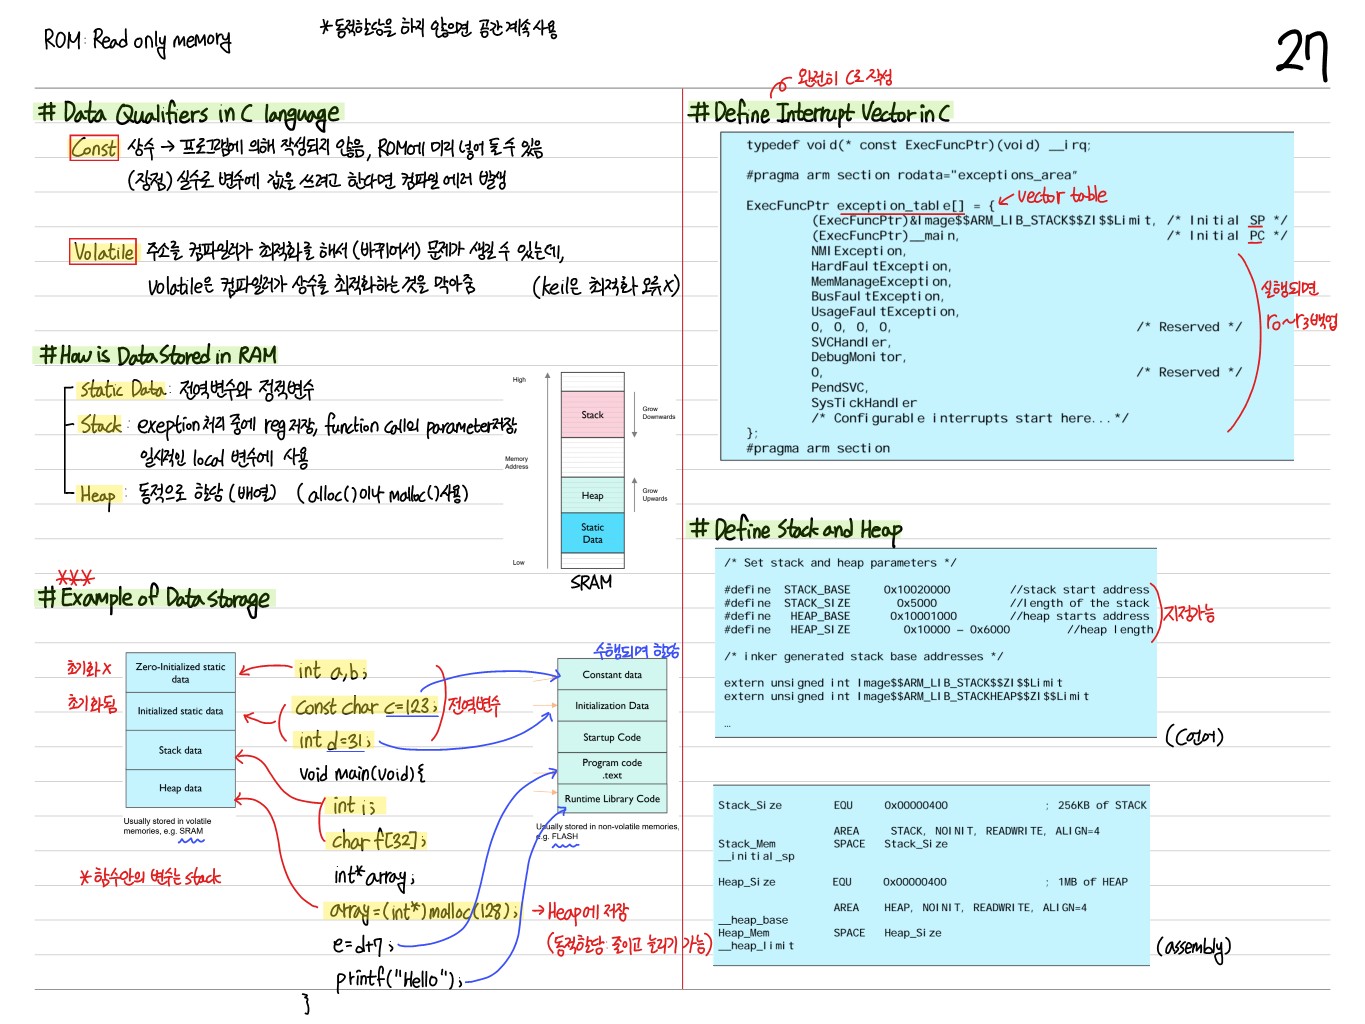 ROM: Read only memory
*동적할당을 하지 않으면 공간 계속 사용
27
# Data Qualifiers in C language
Const 상수 → 프로그램에 의해 작성되지 않음, ROM에 미리 넣어 둘 수 있음
(장점) 실수로 변수에 값을 쓰려고 한다면 컴파일 에러 발생
Volatile 주소를 컴파일러가 최적화를 해서 (바뀌어서) 문제가 생길 수 있는데,
Volatile은 컴파일러가 상수를 최적화하는 것을 막아줌 (keil은 최적화 오류X)
# How is Data Stored in RAM
static Data: 전역변수와 정적변수
Stack: exeption 처리 중에 reg 저장, function call의 parameter저장,
일시적인 local 변수에 사용
Heap: 동적으로 할당 (배열) (alloc()이나 malloc()사용)
High
Stack
Grow
Downwards
Memory
Address
Heap
Grow
Upwards
Static
Data
Low
SRAM
***
# Example of Data Storage
초기화 X
Zero-Initialized static
data
초기화됨
Initialized static data
Stack data
Heap data
Usually stored in volatile
memories, e.g. SRAM
*함수안의 변수는 stack
int a,b;
const char c=123;
전역변수
int d=31;
void main(void){
int i;
char f[32];
int* array;
array=(int*)malloc(128);
→ Heap에 저장
(동적할당: 줄이고 늘리기 가능)
e=d+7;
printf("Hello");
}
수행되면 할당
Constant data
Initialization Data
Startup Code
Program code
.text
Runtime Library Code
Usually stored in non-volatile memories,
e.g. FLASH
완전히 C로 작성
# Define Interrupt Vector in C
typedef void(* const ExecFuncPtr)(void) __irq;
#pragma arm section rodata="exceptions_area"
ExecFuncPtr exception_table[] = {
← vector table
(ExecFuncPtr)&Image$$ARM_LIB_STACK$$ZI$$Limit, /* Initial SP */
(ExecFuncPtr)__main, /* Initial PC */
NMIException,
HardFaultException,
MemManageException,
BusFaultException,
UsageFaultException,
0, 0, 0, 0, /* Reserved */
SVCHandler,
DebugMonitor,
0, /* Reserved */
PendSVC,
SysTickHandler
/* Configurable interrupts start here...*/
};
#pragma arm section
실행되면
r0~r3백업
# Define Stack and Heap
/* Set stack and heap parameters */
#define STACK_BASE 0x10020000 //stack start address
#define STACK_SIZE 0x5000 //length of the stack
#define HEAP_BASE 0x10001000 //heap starts address
#define HEAP_SIZE 0x10000 – 0x6000 //heap length
지정가능
/* inker generated stack base addresses */
extern unsigned int Image$$ARM_LIB_STACK$$ZI$$Limit
extern unsigned int Image$$ARM_LIB_STACKHEAP$$ZI$$Limit
…
(C언어)
Stack_Size EQU 0x00000400 ; 256KB of STACK
AREA STACK, NOINIT, READWRITE, ALIGN=4
Stack_Mem SPACE Stack_Size
__initial_sp
Heap_Size EQU 0x00000400 ; 1MB of HEAP
AREA HEAP, NOINIT, READWRITE, ALIGN=4
__heap_base
Heap_Mem SPACE Heap_Size
__heap_limit
(assembly)